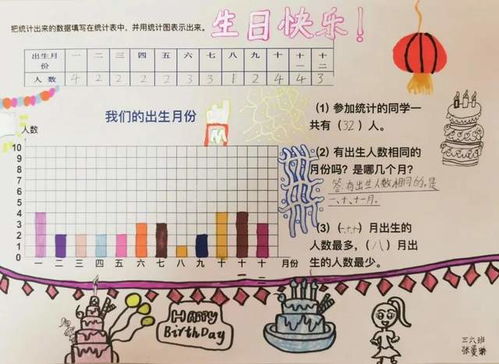 生日快乐！
把统计出来的数据填写在统计表中，并用统计图表示出来。
出生月份 一 二 三 四 五 六 七 八 九 十 十一 十二
人数 4 2 2 2 3 3 1 2 4 4 3
我们的出生月份
人数
10
9
8
7
6
5
4
3
2
1
0
一 二 三 四 五 六 七 八 九 十 十一 十二 月份
(1) 参加统计的同学一
共有（32）人。
(2) 有出生人数相同的
月份吗？是哪几个月？
答：有出生人数相同的，是
一、十、十一月。
(3) （一、十、十一）月出生的
人数最多，（八）月出
生的人数最少。
Happy
BirthDay
三六班